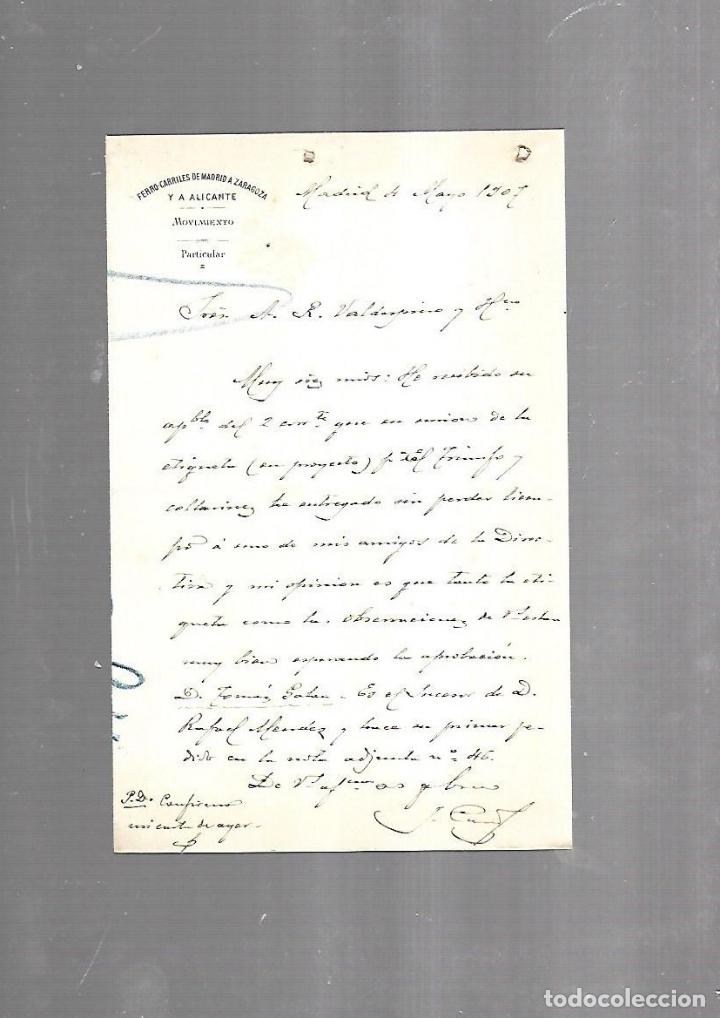 FERRO-CARRILES DE MADRID A ZARAGOZA
Y A ALICANTE
MOVIMIENTO
Particular
Madrid 4 Mayo 1907
Sres. A. R. Valdespino y Hno
Muy Sres mios: He recibido su
apble del 2 corrte que en union de la
etiqueta (en proyecto) pa el Triunfo y
collarines he entregado sin perder tiem-
po á uno de mis amigos de la Direc-
tiva y mi opinion es que tanto la eti-
queta como las observaciones de Vs estan
muy bien esperando la aprobación.
D. Tomás Galan - Es el sucesor de D.
Rafael Mendez y hace su primer pe-
dido en la nota adjunta nº 46.
De Vs
P.D. Confirmo
mi carta de ayer.
todocoleccion.net